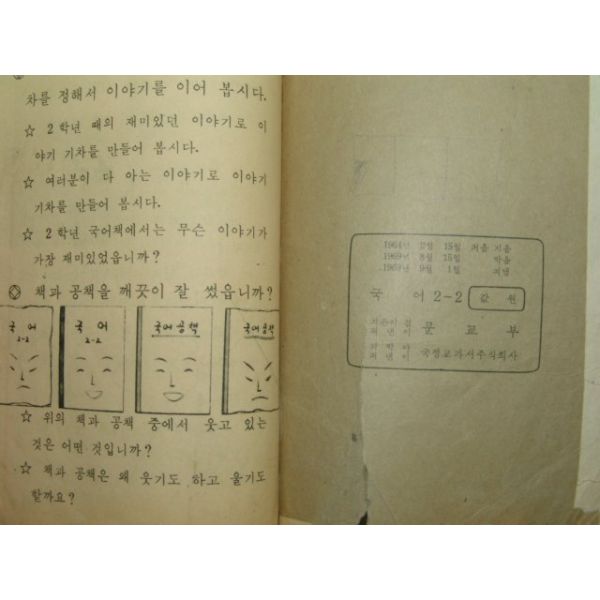 차를 정해서 이야기를 이어 봅시다.
☆ 2학년 때의 재미있던 이야기로 이
야기 기차를 만들어 봅시다.
☆ 여러분이 다 아는 이야기로 이야기
기차를 만들어 봅시다.
☆ 2학년 국어책에서는 무슨 이야기가
가장 재미있었읍니까?
◎ 책과 공책을 깨끗이 잘 썼읍니까?
국어
2-2
국어
2-2
국어공책
국어공책
☆ 위의 책과 공책 중에서 웃고 있는
것은 어떤 것입니까?
☆ 책과 공책은 왜 웃기도 하고 울기도
할까요?
1964년 월 15일 처음 지음
1969년 8월 15일 박음
1969년 9월 1일 펴냄
국 어 2-2 값 원
펴낸이 문 교 부
펴낸이 국정교과서주식회사